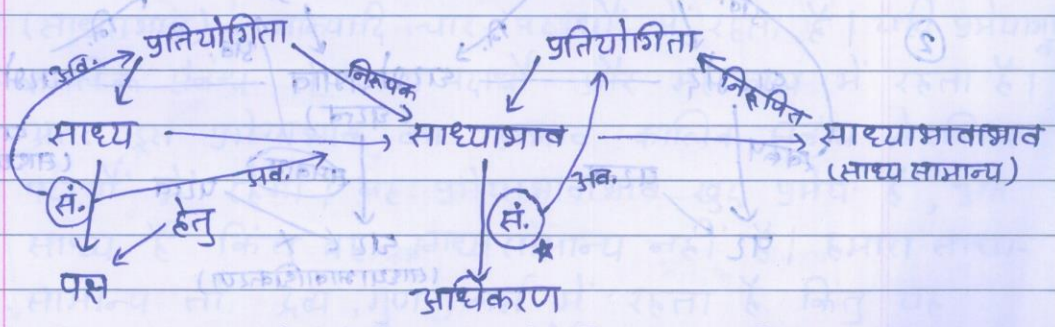 प्रतियोगिता प्रतियोगिता
अव. निरूपक निरूपित
साध्य साध्याभाव साध्याभावाभाव
(साध्य सामान्य)
अव. अव.
सं. हेतु सं.
पक्ष
अधिकरण